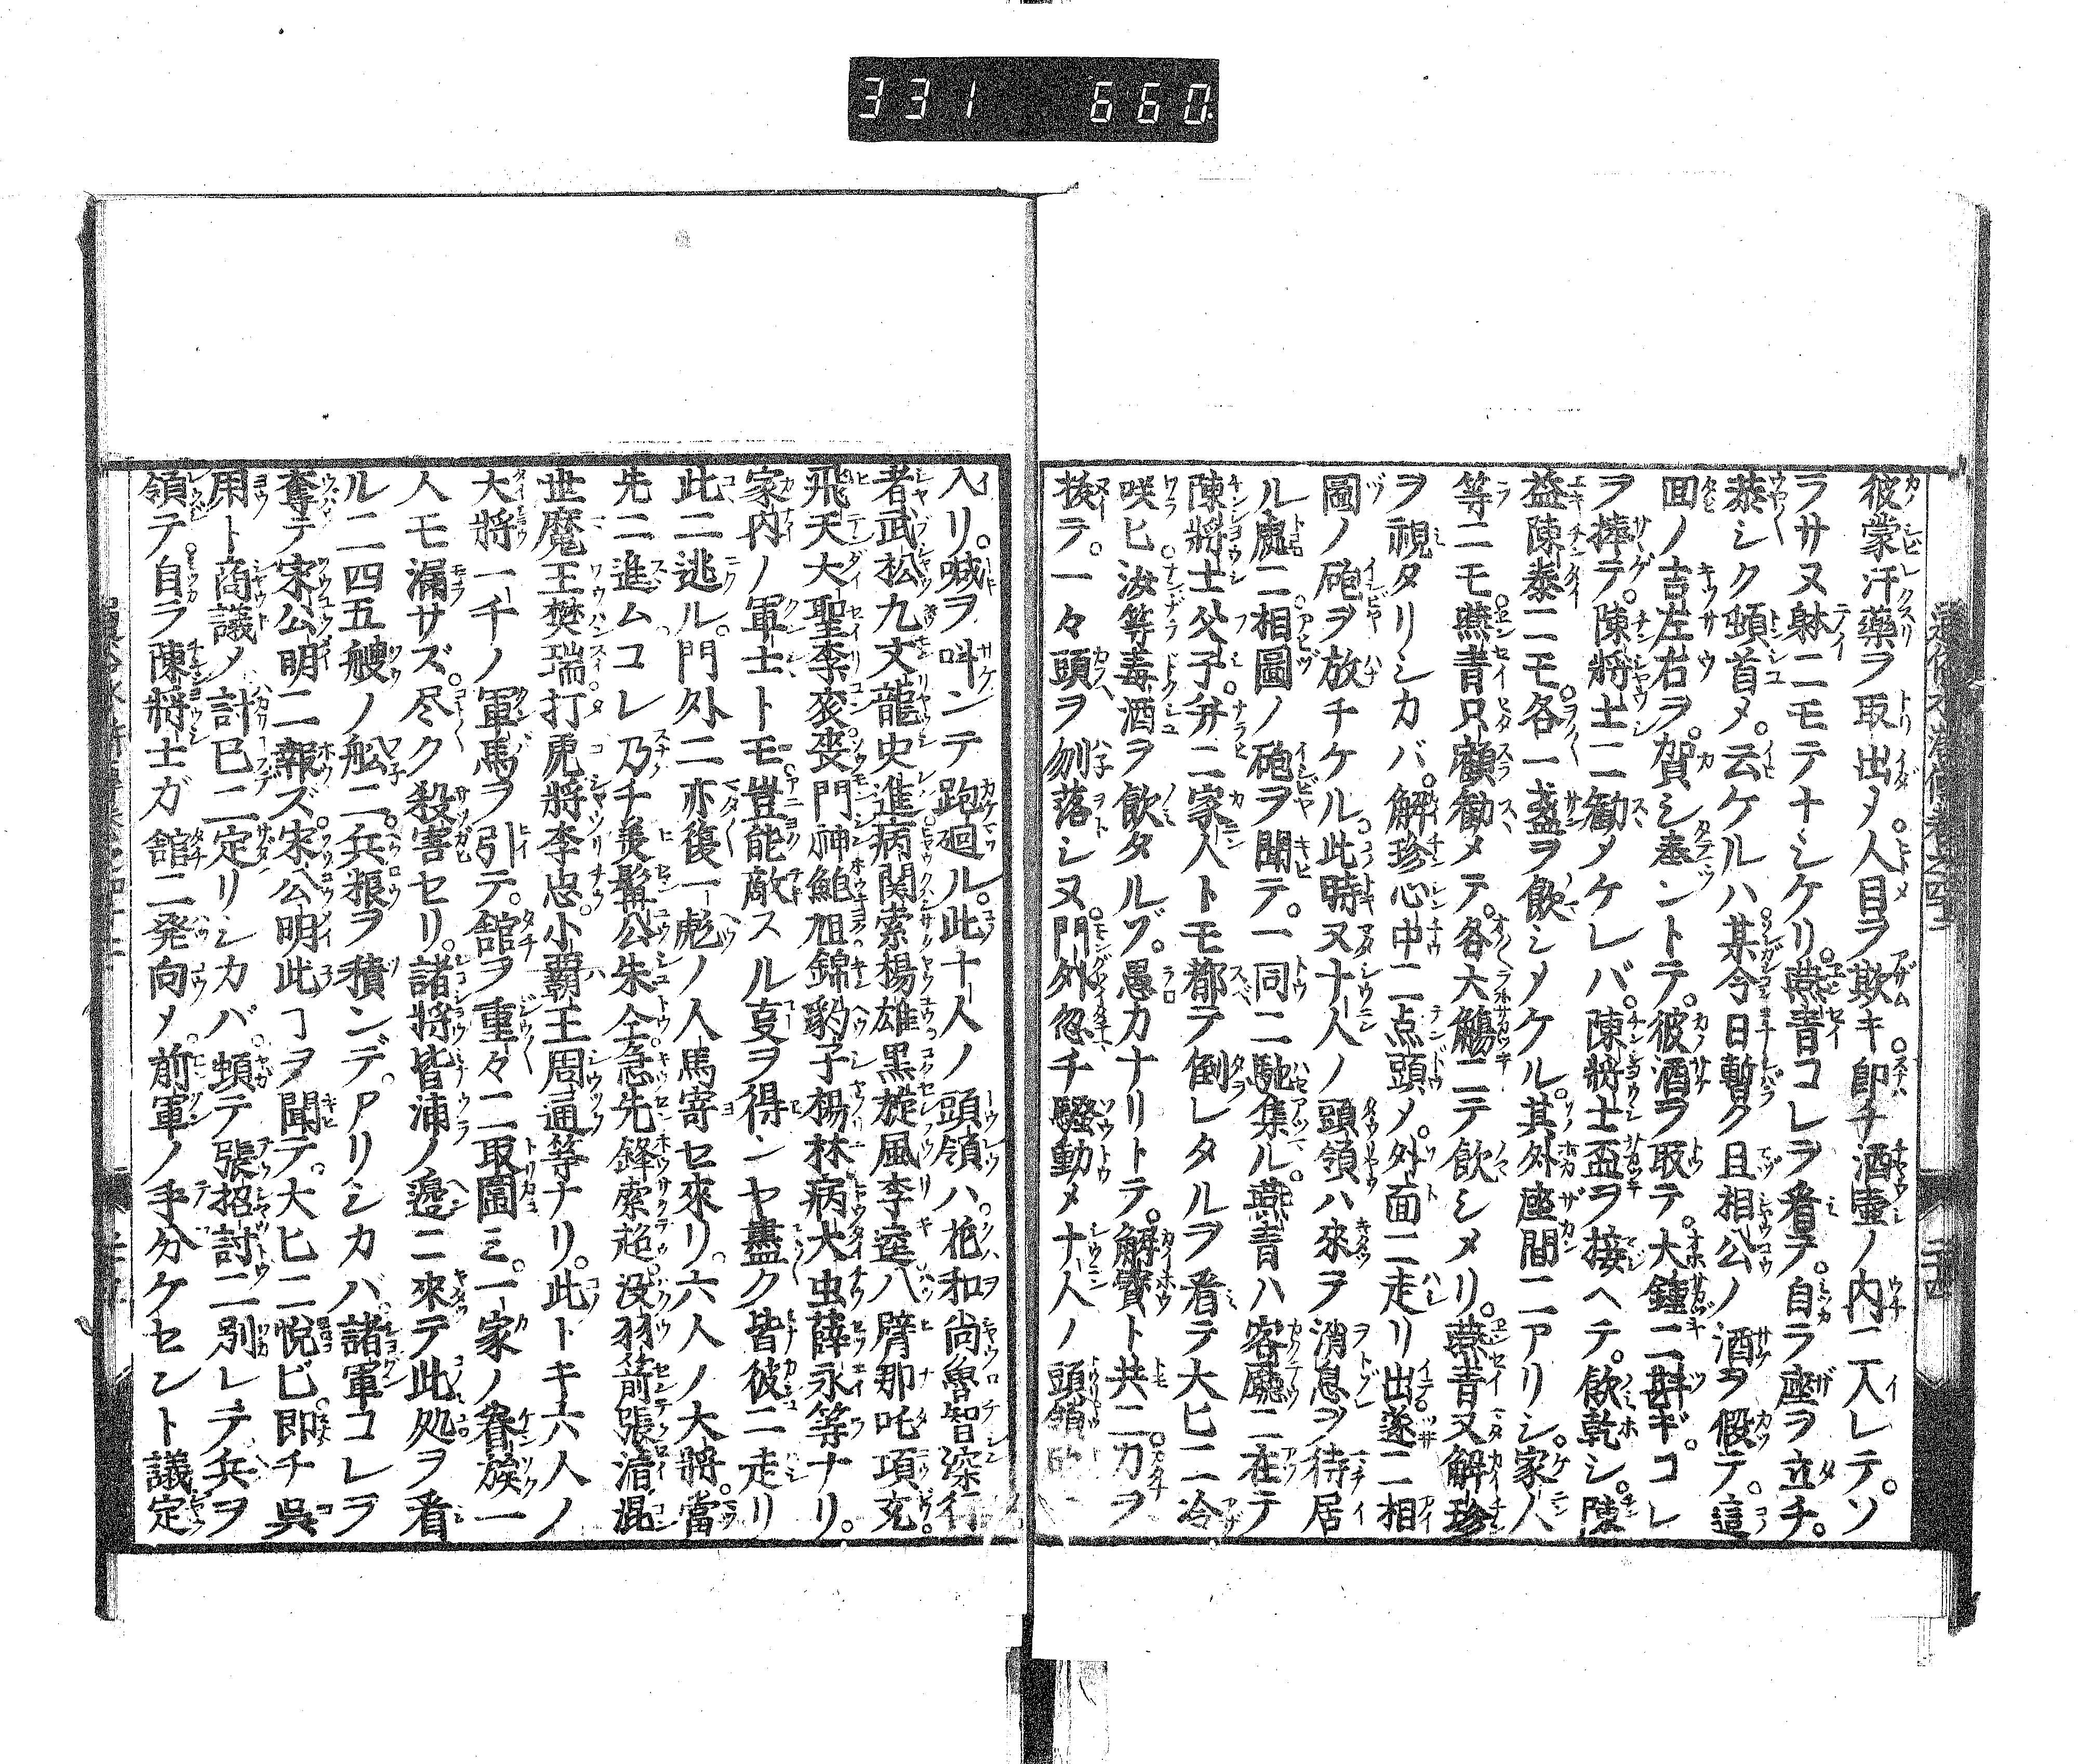 331 660
彼蒙汗藥ヲ取出メ。人目ヲ欺キ即チ酒壷ノ内ニ入レテ。ソ
ラサヌ躰ニモテナシケリ。燕青コレヲ看テ。自ラ座ヲ立チ。
恭シク頓首メ。云ケルハ某今日暫ク且相公ノ酒ヲ假テ。這
回ノ吉左右ヲ。賀シ奉ントテ。彼酒ヲ取テ。大鍾ニ斟ギ。コレ
ヲ捧テ。陳將士ニ勸メケレバ。陳將士盃ヲ接ヘテ。飲乾シ。陳
益陳泰ニモ。各一盞ヲ飲シメケル。其外座間ニアリシ。家人
等ニモ燕青只顧勸メテ。各大觴ニテ飲シメリ。燕青又解珍
ヲ視タリシカバ。解珍心中ニ点頭メ。外面ニ走リ出遂ニ相
圖ノ砲ヲ放チケル。此時又十人ノ頭領ハ來テ消息ヲ待居
ル處ニ相圖ノ砲ヲ聞テ。一同ニ馳集ル。燕青ハ客廳ニ在テ
陳將士父子。弁ニ家人トモ都テ倒レタルヲ看テ大ヒニ冷
咲ヒ汝等毒酒ヲ飲タルゾ。愚カナリトテ。解寶ト共ニ刀ヲ
拔テ。一々頭ヲ刎落シヌ。門外忽チ騒動メ十人ノ頭領
入リ。喊ヲ呌ンテ跑廻ル。此十人ノ頭領ハ。花和尚魯智深行
者武松九文龍史進病関索楊雄黒旋風李逵八臂那吒項充
飛天大聖李袞喪門神鮑旭錦豹子楊林病大虫薛永等ナリ。
家内ノ軍士トモ豈能敵スル㕝ヲ得ンヤ盡ク皆彼ニ走リ
此ニ逃ル。門外ニ亦復一彪ノ人馬寄セ來リ。六人ノ大將當
先ニ進ムコレ乃チ美髯公朱仝急先鋒索超没羽箭張清混
世魔王樊瑞打虎將李忠。小覇王周通等ナリ。此トキ六人ノ
大將一千ノ軍馬ヲ引テ。舘ヲ重々ニ取圍ミ。一家ノ眷族一
人モ漏サズ。尽ク殺害セリ。諸將皆浦ノ邉ニ來テ此処ヲ看
ル二四五艘ノ舩ニ。兵粮ヲ積ンデ。アリシカバ諸軍コレヲ
奪テ宋公明ニ報ズ。宋公明此ヿヲ聞テ。大ヒニ悦ビ。即チ呉
用ト商議メ計已ニ定リシカバ。頓テ張招討ニ別レテ兵ヲ
領テ。自ラ陳將士ガ舘ニ発向メ。前軍ノ手分ケセント議定